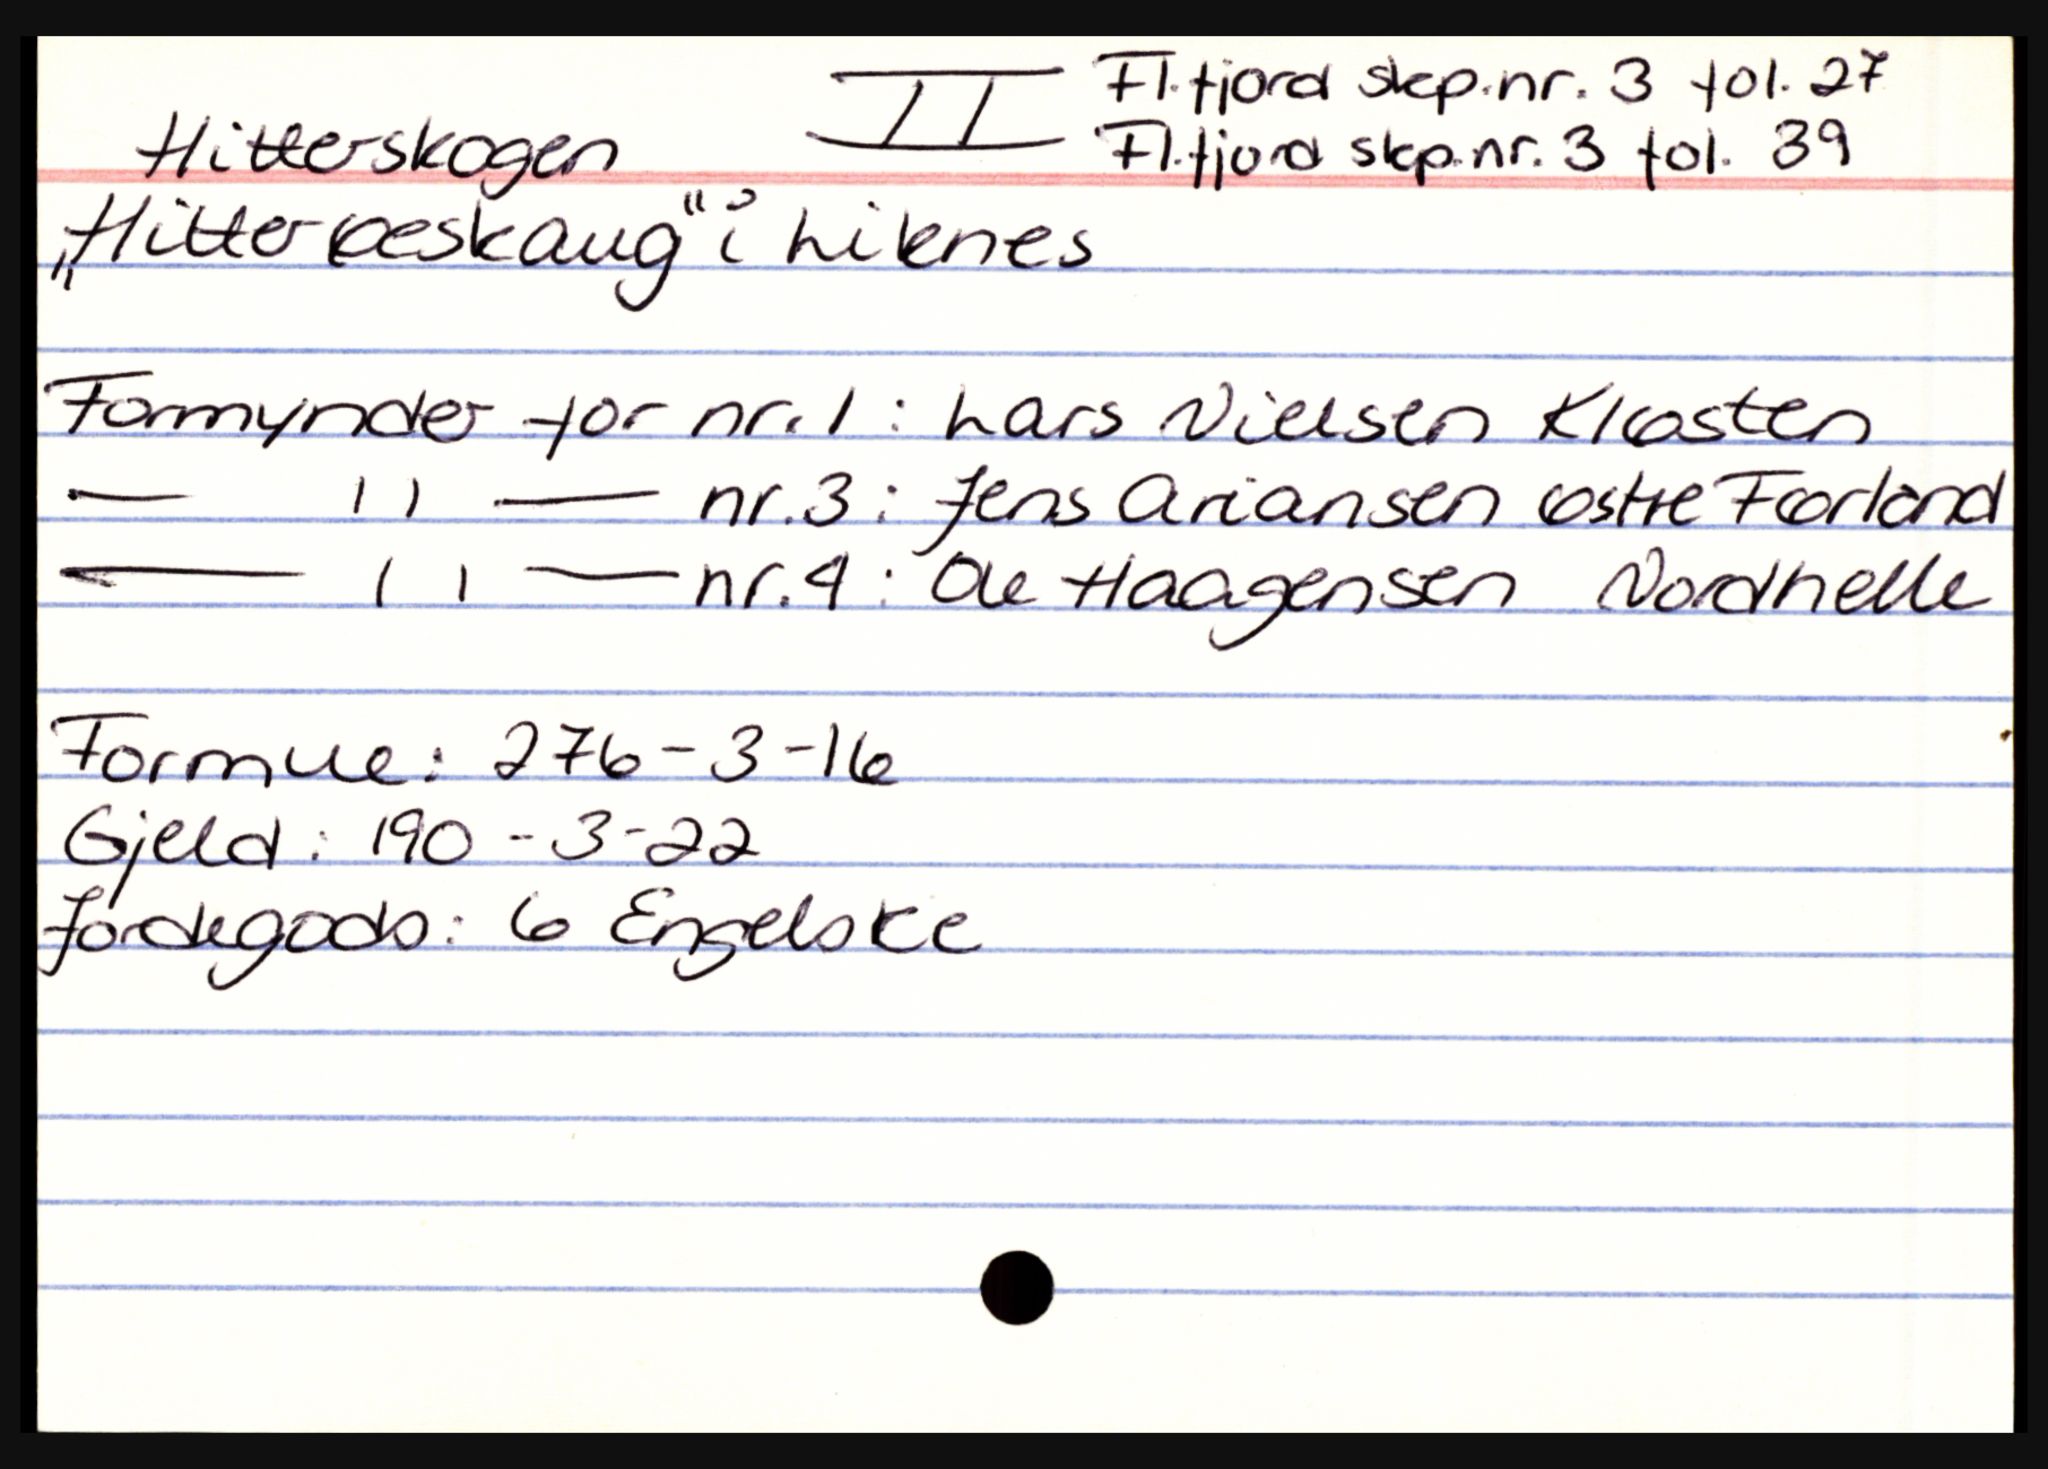 Hitterskogen II Fl.fjord skp.nr. 3 fol. 27
Fl.fjord skp.nr. 3 fol. 39
„Hitterøeskaug“ i Liknes
Formynder for nr. 1 : Lars Nielsen Kløsten
— " — nr. 3 : Jens Ariansen østre Førland
— " — nr. 4 : Ole Haagensen Nordhelle
Formue: 276 - 3 - 16
Gjeld : 190 - 3 - 22
Jordegods: 6 Engelske